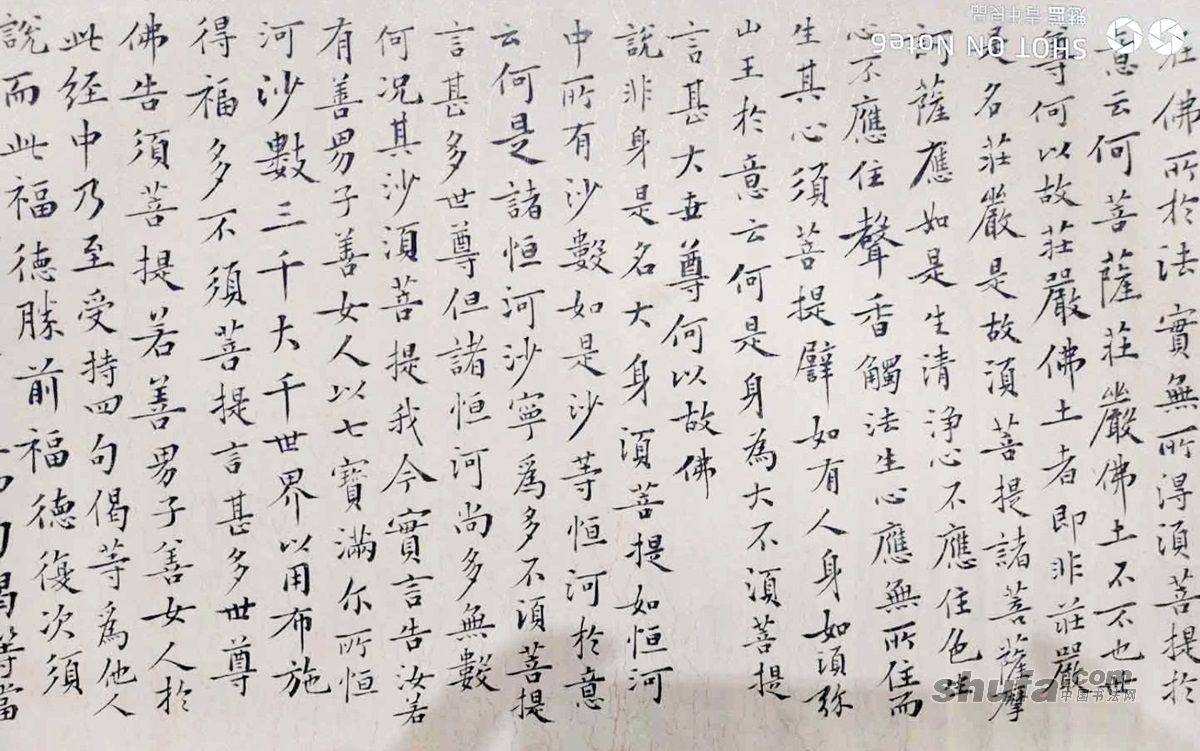 在佛所於法實無所得須菩提於
意云何菩薩莊嚴佛土不不也世
尊何以故莊嚴佛土者即非莊嚴
是名莊嚴是故須菩提諸菩薩摩
訶薩應如是生清淨心不應住色生
心不應住聲香觸法生心應無所住而
生其心須菩提譬如有人身如須弥
山王於意云何是身為大不須菩提
言甚大世尊何以故佛
說非身是名大身須菩提如恒河
中所有沙數如是沙等恒河於意
云何是諸恒河沙寧爲多不須菩提
言甚多世尊但諸恒河尚多無數
何況其沙須菩提我今實言告汝若
有善男子善女人以七寶滿尔所恒
河沙數三千大千世界以用布施
得福多不須菩提言甚多世尊
佛告須菩提若善男子善女人於
此経中乃至受持四句偈等爲他人
說而此福德勝前福德復次須
句偈等當
SHOT ON Note6
魅蓝 青年良品
shufa.com
中国书法网